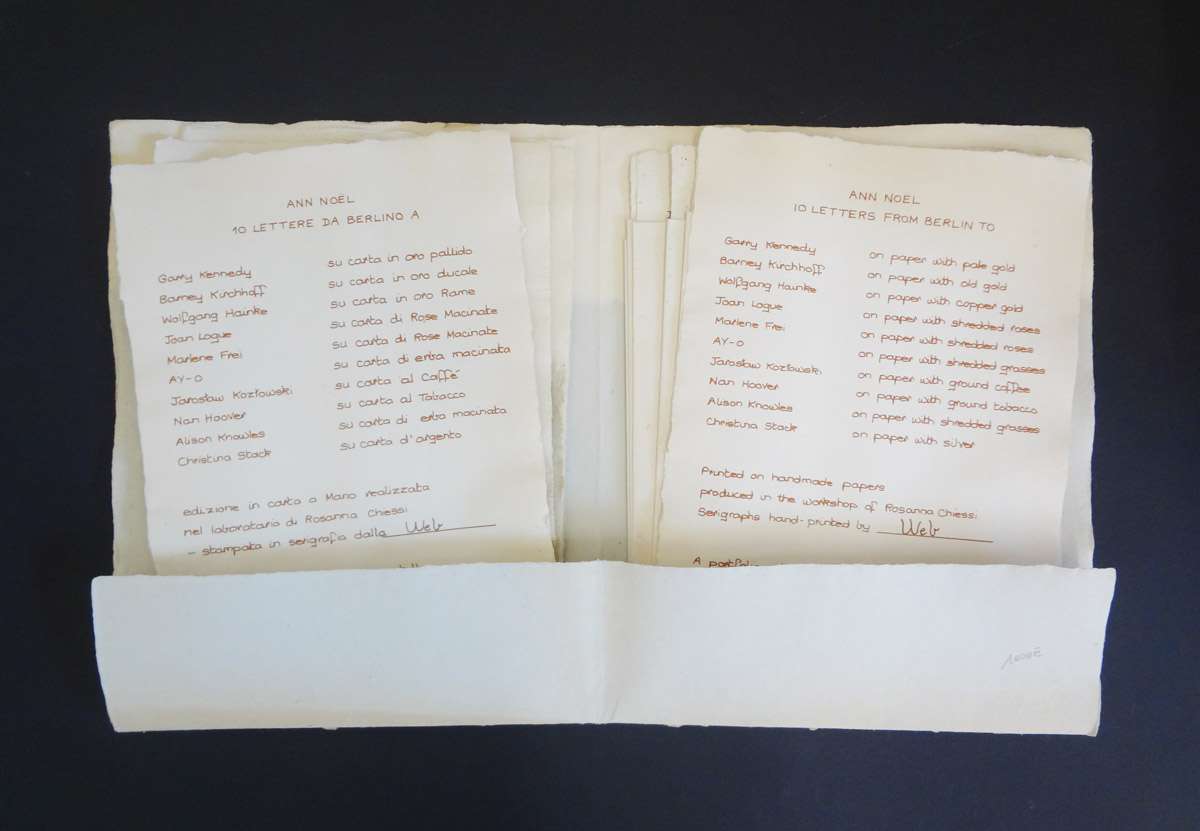 ANN NOËL
10 LETTERE DA BERLINO A
Garry Kennedy su carta in oro pallido
Barney Kirchhoff su carta in oro ducale
Wolfgang Hainke su carta in oro Rame
Joan Logue su carta di Rose Macinate
Marlene Frei su carta di Rose Macinate
AY-O su carta di erba macinata
Jarosław Kozłowski su carta al Caffé
Nan Hoover su carta al Tabacco
Alison Knowles su carta di erba macinata
Christina Stack su carta d'argento
edizione in carta a Mano realizzata
nel laboratorio di Rosanna Chiessi
- stampata in serigrafia dalla Web
ANN NOËL
10 LETTERS FROM BERLIN TO
Garry Kennedy on paper with pale gold
Barney Kirchhoff on paper with old gold
Wolfgang Hainke on paper with copper gold
Joan Logue on paper with shredded roses
Marlene Frei on paper with shredded roses
AY-O on paper with shredded grasses
Jarosław Kozłowski on paper with ground coffee
Nan Hoover on paper with ground tobacco
Alison Knowles on paper with shredded grasses
Christina Stack on paper with silver
Printed on handmade papers
produced in the workshop of Rosanna Chiessi
Serigraphs hand-printed by Web
A portfolio